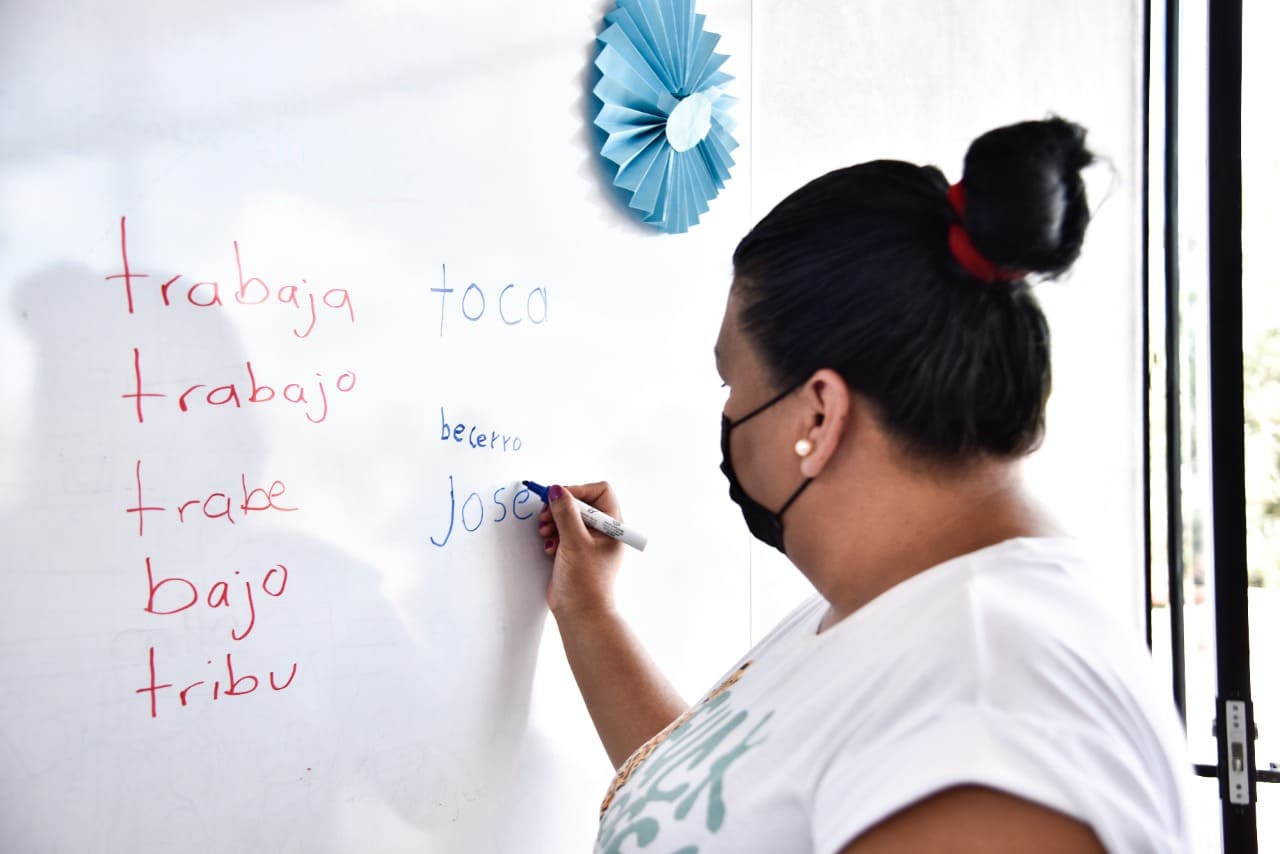 trabaja
trabajo
trabe
bajo
tribu
toca
becerro
José